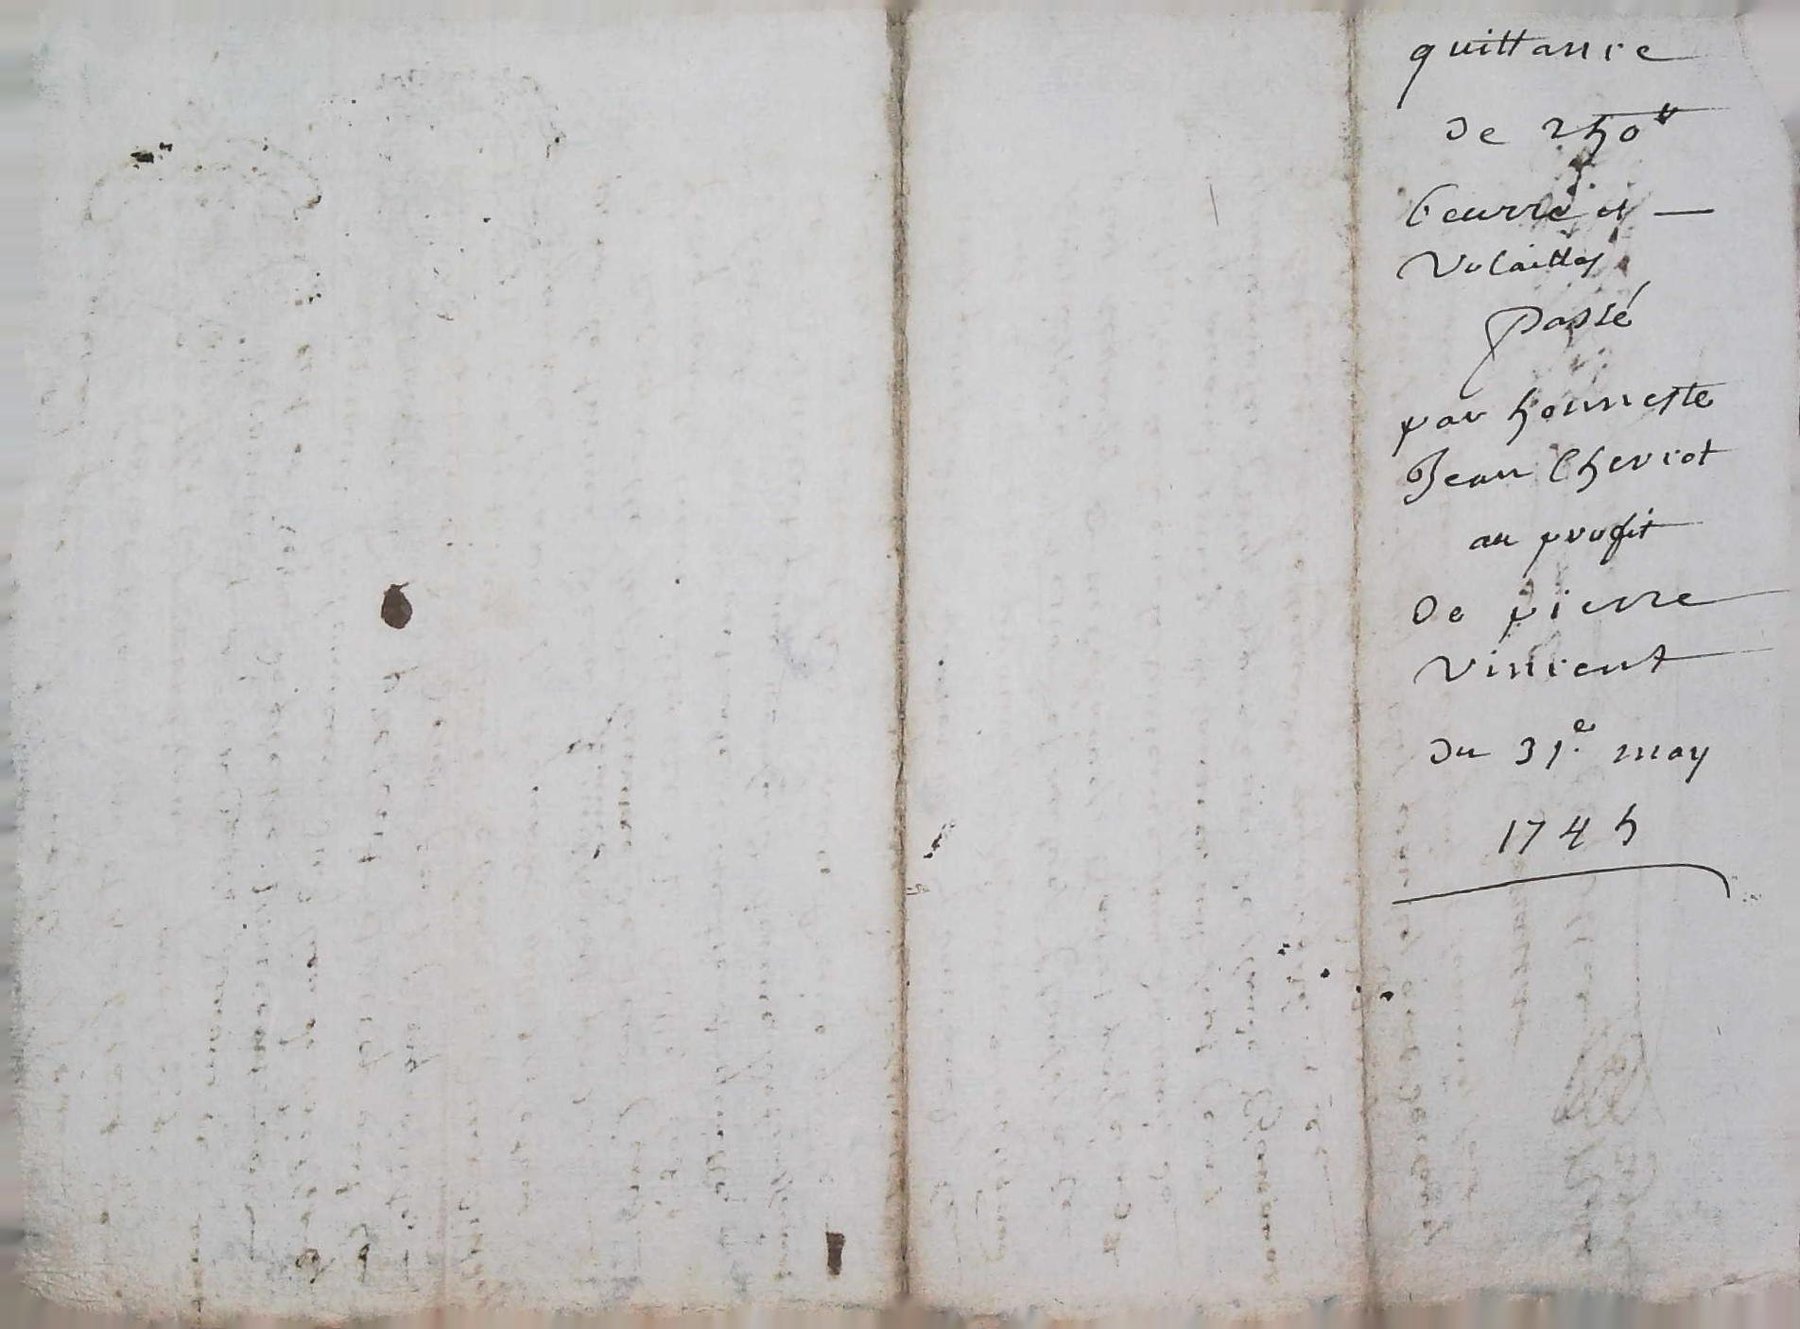 quittance
de 250ᵗᵗ
beurre et
Volailles
passé
par honneste
Jean Cheviot
au profit
de pierre
Vincent
du 31.e may
1745